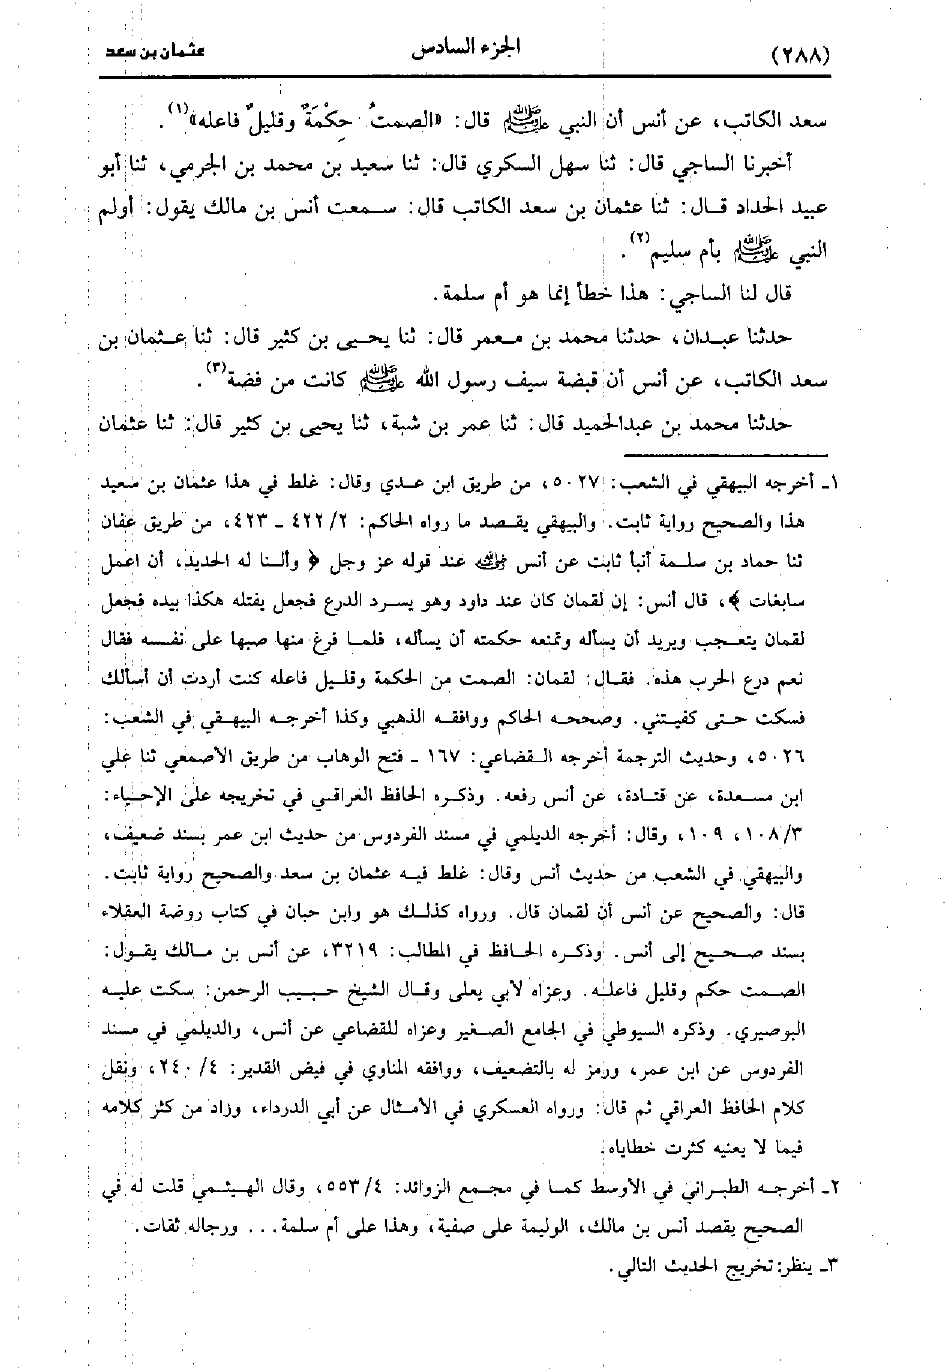 (٢٨٨) الجزء السادس عثمان بن سعد
سعد الكاتب، عن أنس أن النبي ﷺ قال: «الصمتُ حِكْمَةٌ وقليلٌ فاعله»(١).
أخبرنا الساجي قال: ثنا سهل السكري قال: ثنا سعيد بن محمد بن الجرمي، ثنا أبو
عبيد الحداد قـال: ثنا عثمان بن سعد الكاتب قال: سـمعت أنس بن مالك يقول: أولم
النبي ﷺ بأم سليم(٢).
قال لنا الساجي: هذا خطأ إنما هو أم سلمة.
حدثنا عبـدان، حدثنا محمد بن معمر قال: ثنا يحيى بن كثير قال: ثنا عثمان بن
سعد الكاتب، عن أنس أن قبضة سيف رسول الله ﷺ كانت من فضة(٣).
حدثنا محمد بن عبدالحميد قال: ثنا عمر بن شبة، ثنا يحيى بن كثير قال: ثنا عثمان
١ـ أخرجه البيهقي في الشعب: ٥٠٢٧، من طريق ابن عدي وقال: غلط في هذا عثمان بن سعيد
هذا والصحيح رواية ثابت. والبيهقي يقصد ما رواه الحاكم: ٤٢٢/٢ ـ ٤٢٣، من طريق عفان
ثنا حماد بن سلمة أنبأ ثابت عن أنس ﷺ عند قوله عز وجل ﴿ وألنا له الحديد، أن اعمل
سابغات ﴾، قال أنس: إن لقمان كان عند داود وهو يسرد الدرع فجعل يفتله هكذا بيده فجعل
لقمان يتعجب ويريد أن يسأله وتمنعه حكمته أن يسأله، فلما فرغ منها صبها على نفسه فقال
نعم درع الحرب هذه. فقال: لقمان: الصمت من الحكمة وقليل فاعله كنت أردت أن أسألك
فسكت حتى كفيتني. وصححه الحاكم ووافقه الذهبي وكذا أخرجه البيهقي في الشعب:
٥٠٢٦، وحديث الترجمة أخرجه القضاعي: ١٦٧ ـ فتح الوهاب من طريق الأصمعي ثنا علي
ابن مسعدة، عن قتادة، عن أنس رفعه. وذكره الحافظ العراقي في تخريجه على الإحياء:
١٠٨/٣، ١٠٩، وقال: أخرجه الديلمي في مسند الفردوس من حديث ابن عمر بسند ضعيف،
والبيهقي في الشعب من حديث أنس وقال: غلط فيه عثمان بن سعد والصحيح رواية ثابت.
قال: والصحيح عن أنس أن لقمان قال. ورواه كذلك هو وابن حبان في كتاب روضة العقلاء
بسند صحيح إلى أنس. وذكره الحافظ في المطالب: ٣٢١٩، عن أنس بن مالك يقول:
الصمت حكم وقليل فاعله. وعزاه لأبي يعلى وقال الشيخ حبيب الرحمن: سكت عليه
البوصيري. وذكره السيوطي في الجامع الصغير وعزاه للقضاعي عن أنس، والديلمي في مسند
الفردوس عن ابن عمر، ورمز له بالتضعيف، ووافقه المناوي في فيض القدير: ٢٤٠/٤، ونقل
كلام الحافظ العراقي ثم قال: ورواه العسكري في الأمثال عن أبي الدرداء، وزاد من كثر كلامه
فيما لا يعنيه كثرت خطاياه.
٢ـ أخرجه الطبراني في الأوسط كما في مجمع الزوائد: ٥٥٣/٤، وقال الهيثمي قلت له في
الصحيح يقصد أنس بن مالك، الوليمة على صفية، وهذا على أم سلمة... ورجاله ثقات.
٣ـ ينظر: تخريج الحديث التالي.